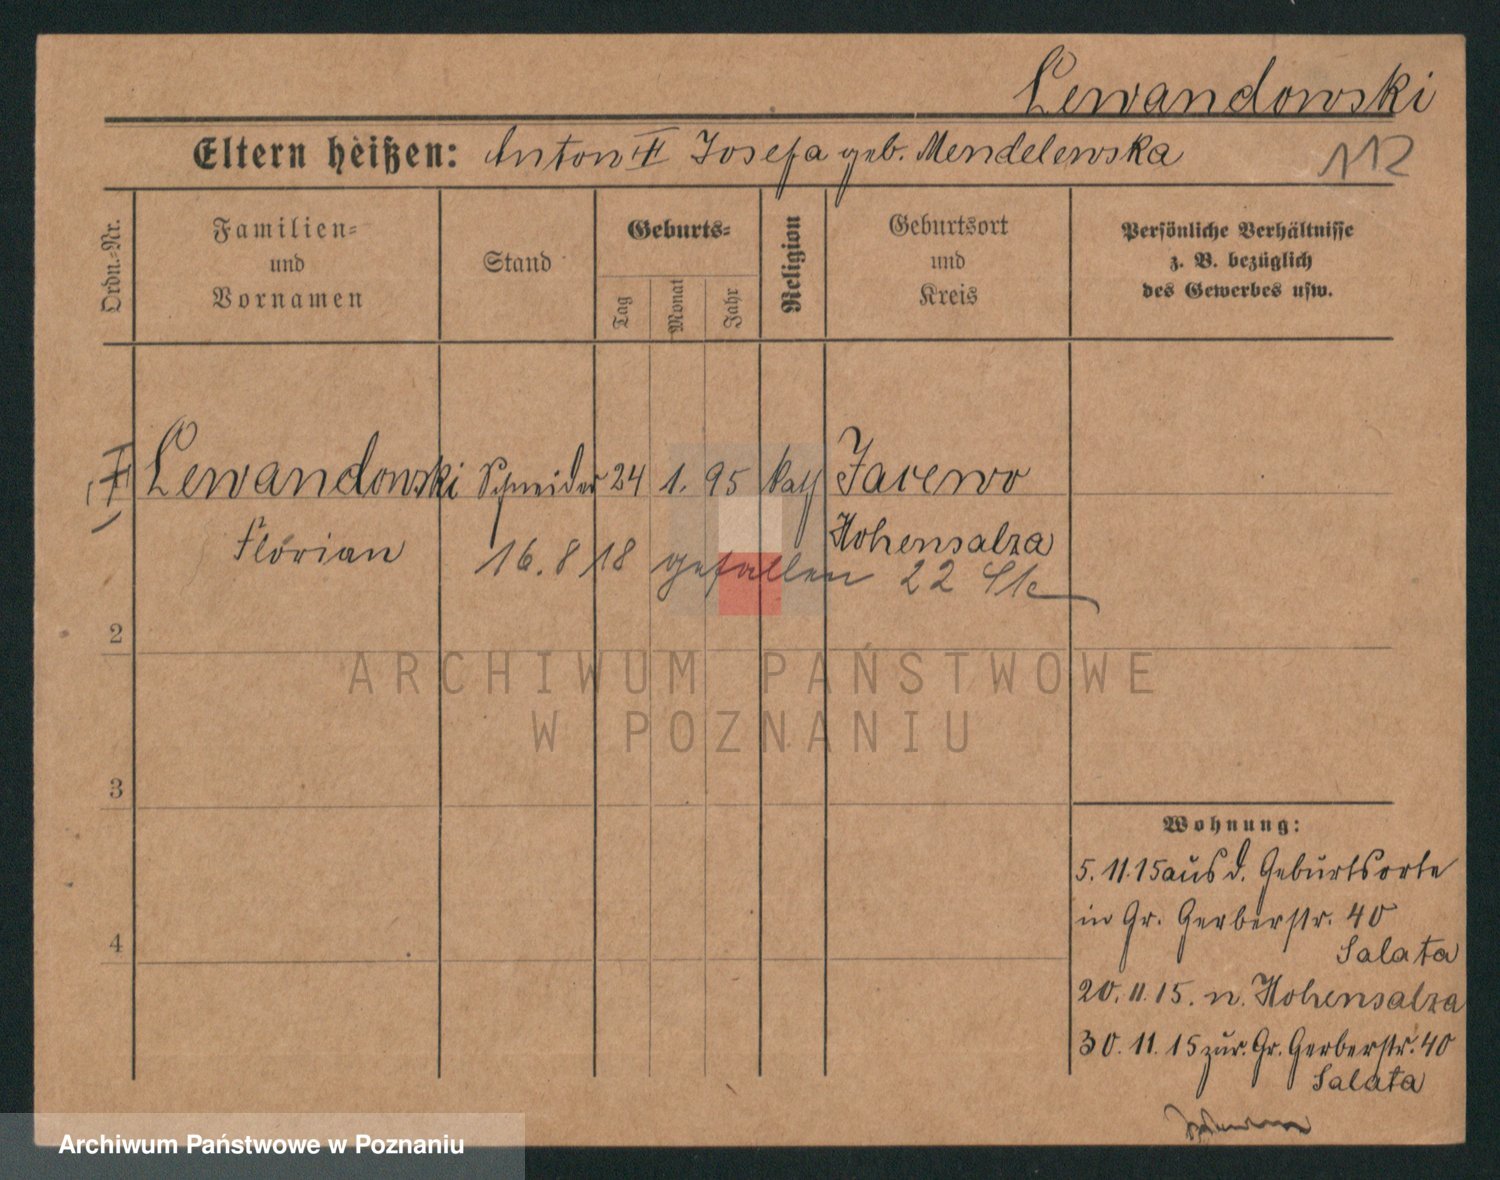 Lewandowski
Eltern heißen: Anton Josefa geb. Mendelewska
112
Ordn.-Nr.
Familien-
und
Vornamen
Stand
Geburts-
Tag
Monat
Jahr
Religion
Geburtsort
und
Kreis
Persönliche Verhältnisse
z. B. bezüglich
des Gewerbes usw.
Lewandowski Schneider 24 1. 95 kath Jacewo
Florian
Hohensalza
16. 8 18 gefallen 22
2
3
4
ARCHIWUM PAŃSTWOWE
W POZNANIU
Wohnung:
5. 11. 15 aus d. Geburtsorte
in Gr. Gerberstr. 40
Salata
20. 11. 15. n. Hohensalza
30. 11. 15 zur. Gr. Gerberstr. 40
Salata
Archiwum Państwowe w Poznaniu